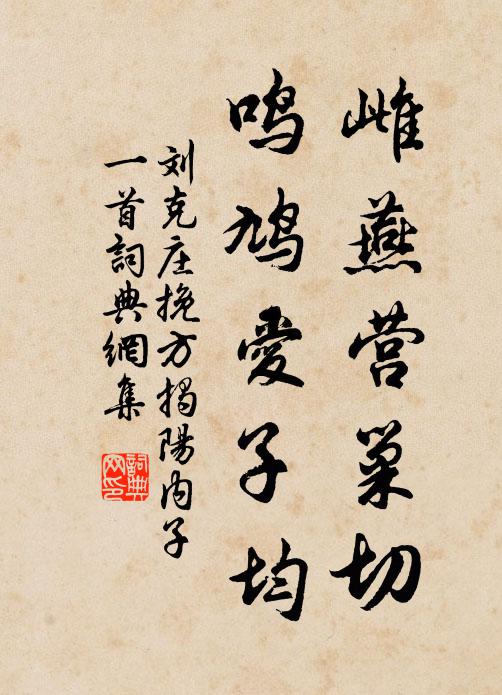 雌燕营巢切
鸣鸠愛子均
刘克庄挽方揭陽内子
一首詞典網集
詞典网印